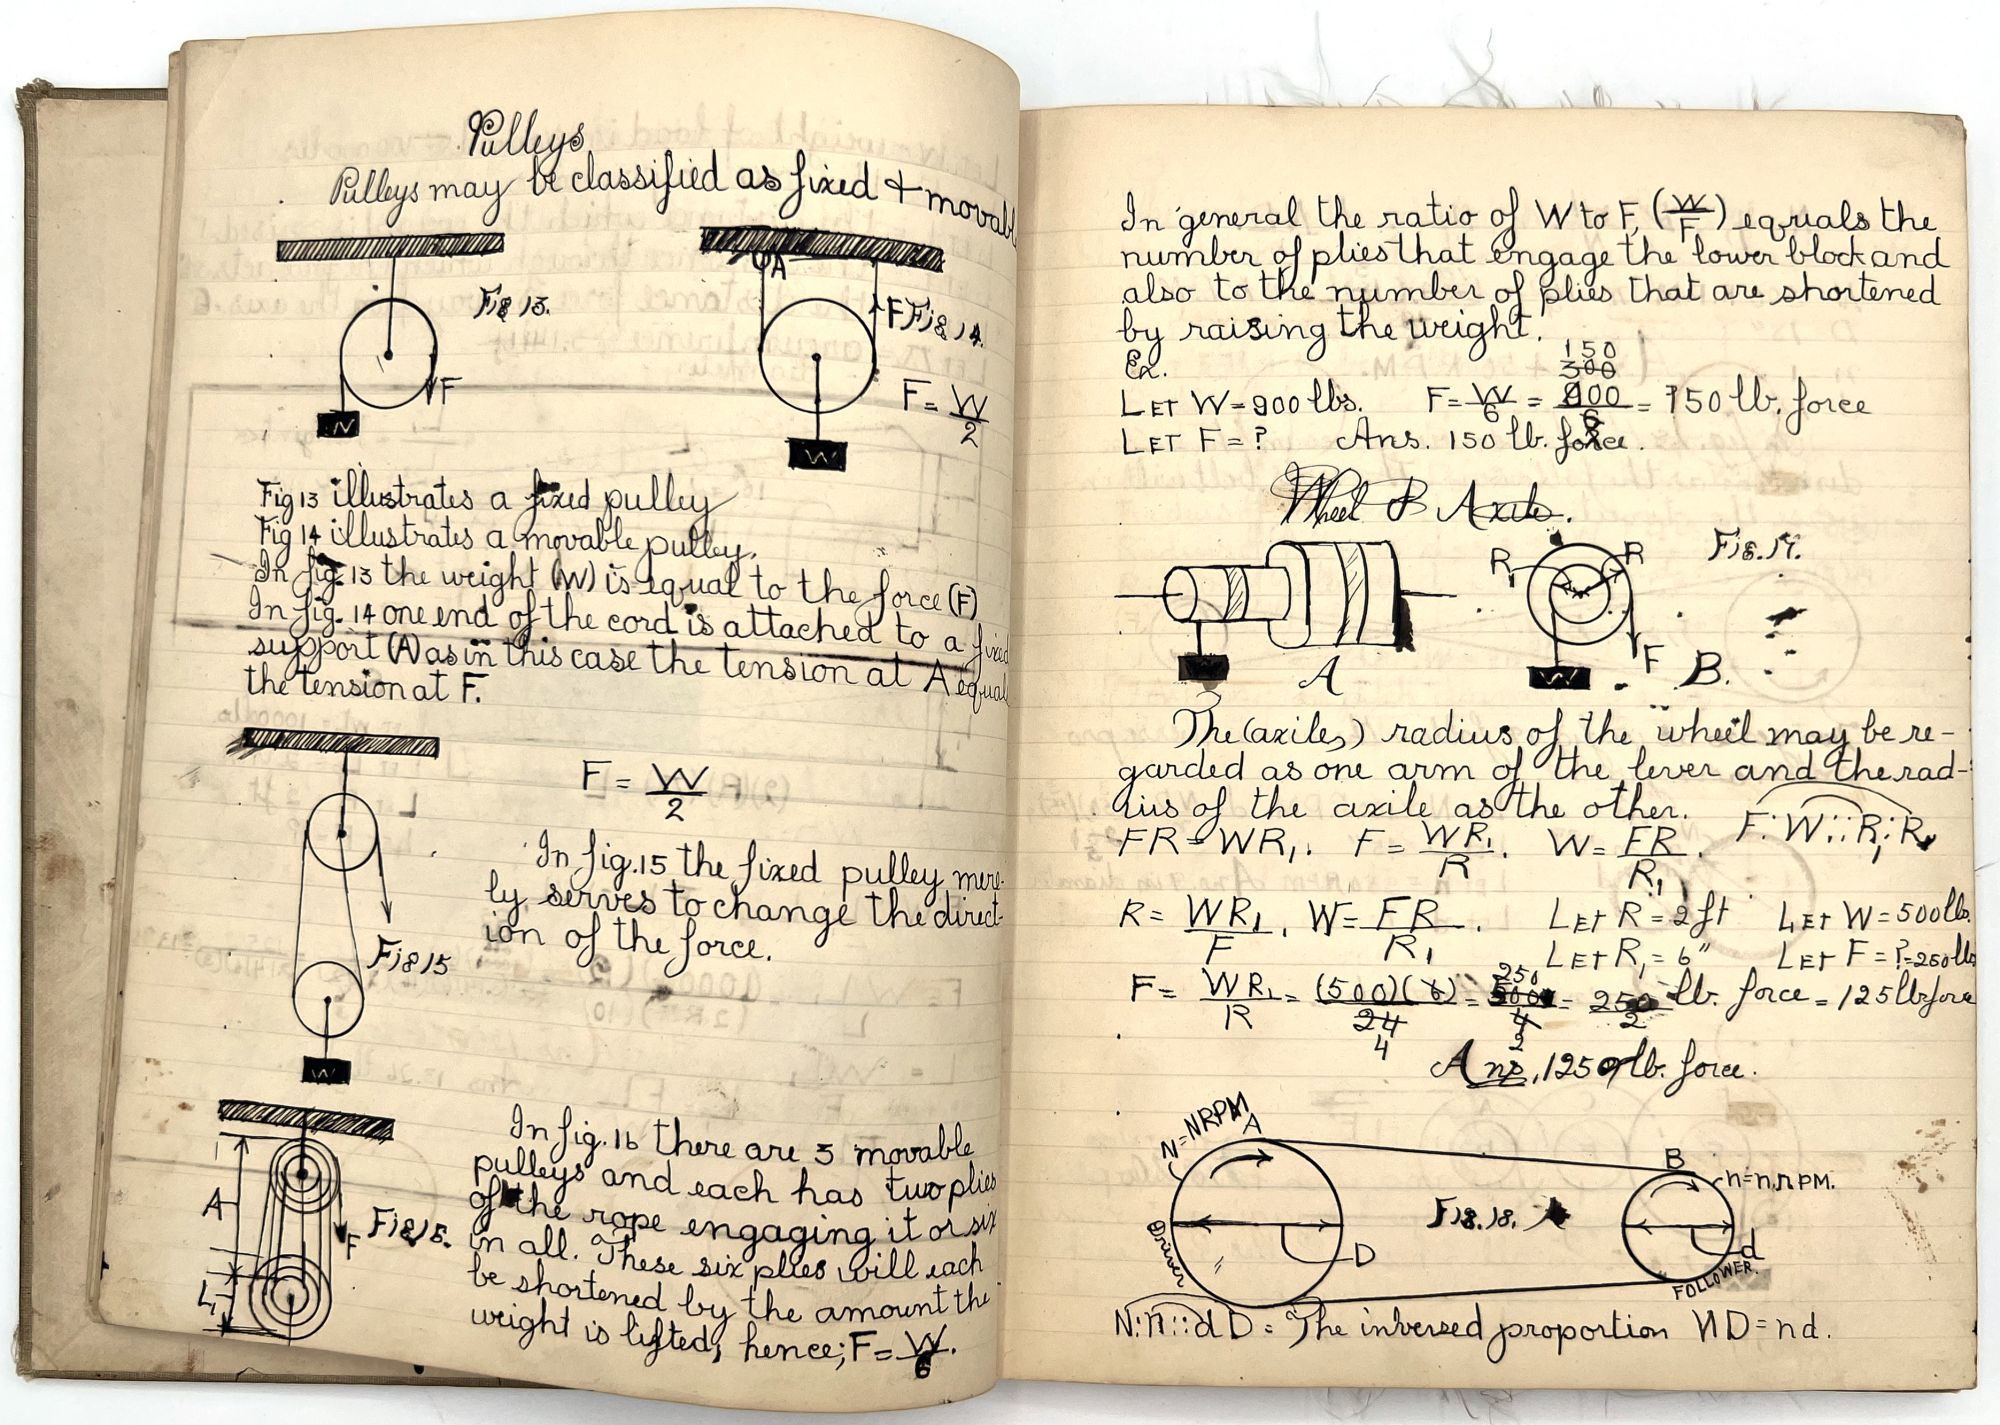 Pulleys
Pulleys may be classified as fixed & movabl
A
Fig 13.
F Fig 14.
F
F = W/2
W
W
Fig 13 illustrates a fixed pulley
Fig 14 illustrates a movable pulley.
In fig. 13 the weight (W) is equal to the force (F)
In fig. 14 one end of the cord is attached to a fixed
support (A) as in this case the tension at A equal
the tension at F.
F = W/2
In fig. 15 the fixed pulley mere-
ly serves to change the direct-
ion of the force.
Fig 15
W
In fig. 16 there are 3 movable
pulleys and each has two plies
of the rope engaging it or six
in all. These six plies will each
be shortened by the amount the
weight is lifted, hence; F = W/6.
A
F
Fig 15.
L
In general the ratio of W to F, (W/F) equals the
number of plies that engage the lower block and
also to the number of plies that are shortened
by raising the weight.
Ex.
150
300
LET W = 900 lbs. F = W/6 = 900/6 = 150 lb. force
LET F = ? Ans. 150 lb. force.
Wheel & Axile.
Fig. 17.
R₁ R
F
W
A B.
The (axiles) radius of the wheel may be re-
garded as one arm of the lever and the rad-
ius of the axile as the other.
F:W::R₁:R
FR = WR₁. F = WR₁/R. W = FR/R₁.
R = WR₁/F. W = FR/R₁. LET R = 2 ft LET W = 500 lbs.
LET R₁ = 6" LET F = ? = 250 lbs
F = WR₁/R = (500)(6)/24 = 500/4 = 250/2 lb. force = 125 lb force
250
4 2
Ans, 125 lb. force.
N = NRPM
A
B
n = n.RPM.
Fig. 18.
D
d
Driver
FOLLOWER.
N:n::d D = The inversed proportion ND = nd.